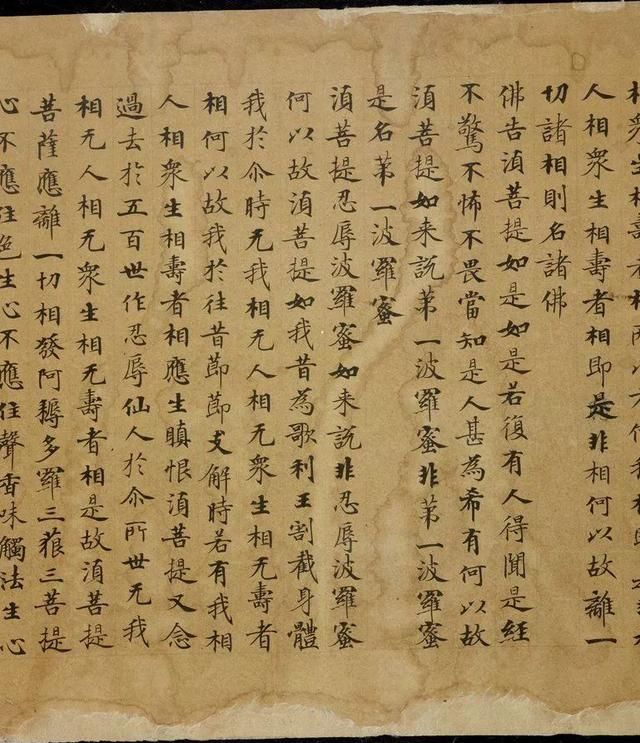 相衆生相壽者相所以者何我相即
人相衆生相壽者相即是非相何以故離一
切諸相則名諸佛
佛告湏菩提如是如是若復有人得聞是經
不驚不怖不畏當知是人甚為希有何以故
湏菩提如来説苐一波羅蜜非苐一波羅蜜
是名苐一波羅蜜
湏菩提忍辱波羅蜜如来説非忍辱波羅蜜
何以故湏菩提如我昔為歌利王割截身體
我於尒時无我相无人相无衆生相无壽者
相何以故我於往昔莭莭支解時若有我相
人相衆生相壽者相應生瞋恨湏菩提又念
過去於五百世作忍辱仙人於尒所世无我
相无人相无衆生相无壽者相是故湏菩提
菩薩應離一切相發阿耨多羅三藐三菩提
心不應住色生心不應住聲香味觸法生心